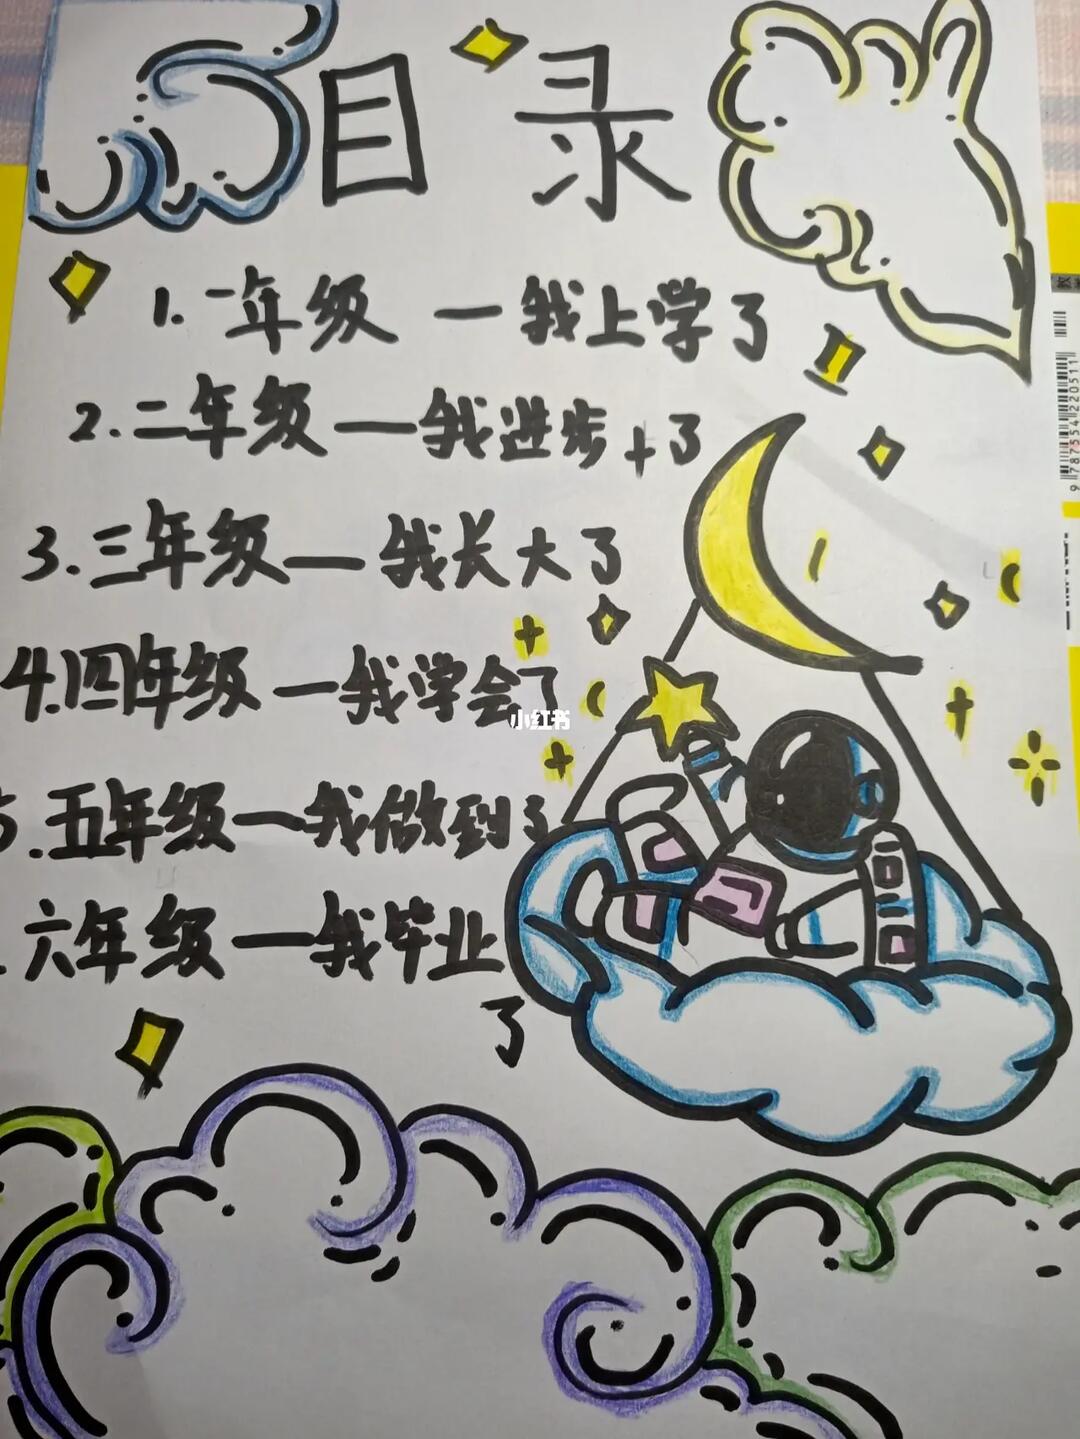 目录
1. 一年级 一我上学了
2. 二年级 — 我进步+了
3. 三年级 — 我长大了
4. 四年级 一我学会了
5. 五年级 一我做到了
. 六年级 — 我毕业
了
小红书
9 787554 220511